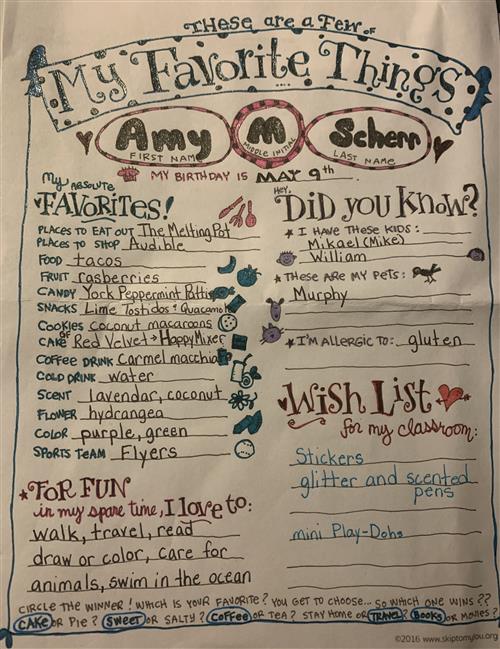 THESE ARE A FEW OF
My Favorite Things
Amy M Scherr
FIRST NAME MIDDLE INITIAL LAST NAME
MY BIRTHDAY IS MAY 9th.
My ABSOLUTE
FAVORITES!
PLACES TO EAT OUT The Melting Pot
PLACES TO SHOP Audible
FOOD tacos
FRUIT rasberries
CANDY York Peppermint Pattie
SNACKS Lime Tostidos + Quacamole
COOKIES coconut macaroons
CAKE or Red Velvet → Happy Mixer
COFFEE DRINK Carmel macchia
COLD DRINK water
SCENT lavendar, coconut
FLOWER hydrangea
COLOR purple, green
SPORTS TEAM Flyers
FOR FUN
in my spare time, I love to:
walk, travel, read
draw or color, care for
animals, swim in the ocean
HEY,
DID you KNOW?
I HAVE THESE KIDS:
Mikael (Mike)
William
THESE ARE MY PETS:
Murphy
I'M ALLERGIC TO: gluten
WISH LIST
for my classroom:
Stickers
glitter and scented
pens
mini Play-Dohs
CIRCLE THE WINNER! WHICH IS YOUR FAVORITE? YOU GET TO CHOOSE... SO WHICH ONE WINS??
CAKE OR PIE? SWEET OR SALTY? COFFEE OR TEA? STAY HOME OR TRAVEL? BOOKS OR MOVIES?
©2016 www.skiptomylou.org